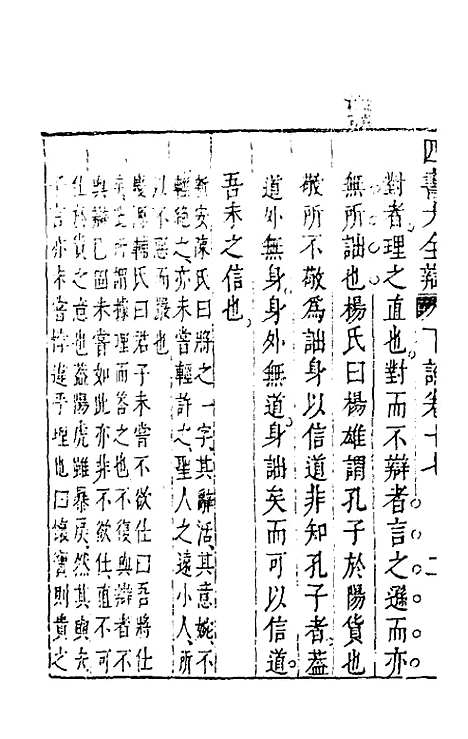 四書大全辯 下論卷十七 二
對者理之直也對而不辯者言之遜而亦
無所詘也楊氏曰楊雄謂孔子於陽貨也
敬所不敬為詘身以信道非知孔子者蓋
道外無身身外無道身詘矣而可以信道
吾未之信也
新安陳氏曰將之一字其辭活其意婉不
輕絕之亦未嘗輕許之聖人之遠小人所
以不惡而嚴也
慶源輔氏曰君子未嘗不欲仕曰吾將仕
所謂據理而荅之也不復與辯者不
與辯已固未嘗如此亦非不欲仕直不可
仕於貨之意也蓋陽虎雖暴戾然其與夫
子言亦未嘗悖違乎理也曰懷寶則貴之